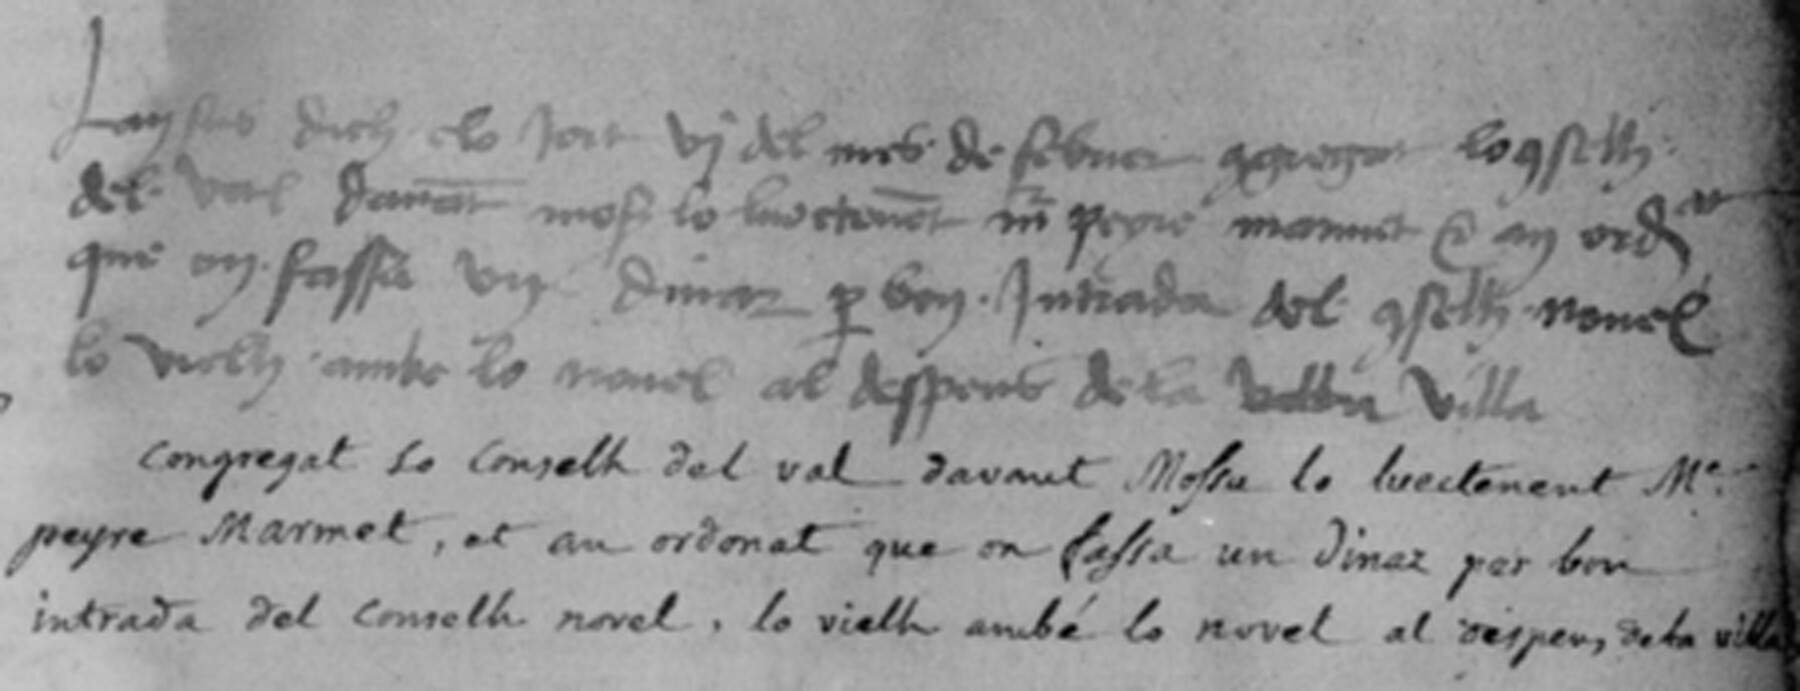 Lan sus dich e lo jort vj del mes de febrier 9gregat lo 9selh
del val davāt mosr lo luoctenēt m̄ peyre marmet & an ordr
que on fassa un dinar p bon Intrada del 9selh novel
lo vielh ambe lo novel al despens de la villa
Congregat lo Conselh del val davant Mossu lo luectenent Me.
peyre Marmet, et an ordonat que on fassa un dinaz per bon
intrada del Conselh novel, lo vielh ambé lo novel al despens de la villa